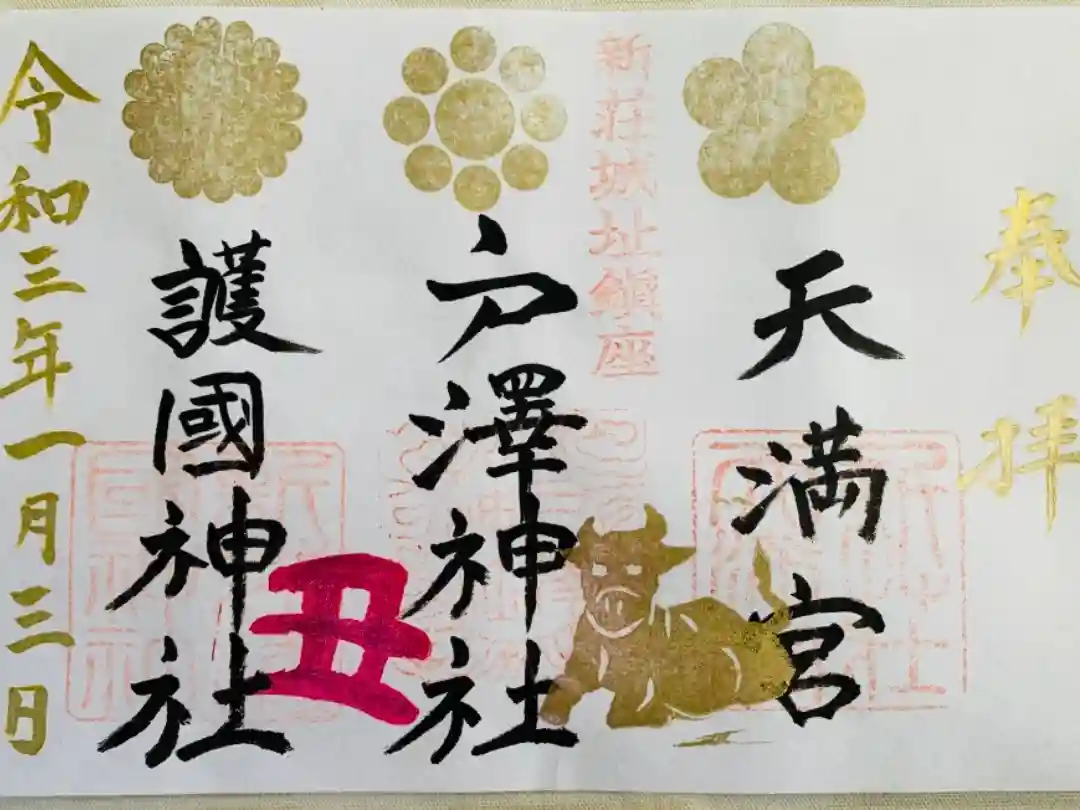 奉拝
天満宮
新荘城址鎮座
戸澤神社
丑
護國神社
令和三年一月三日